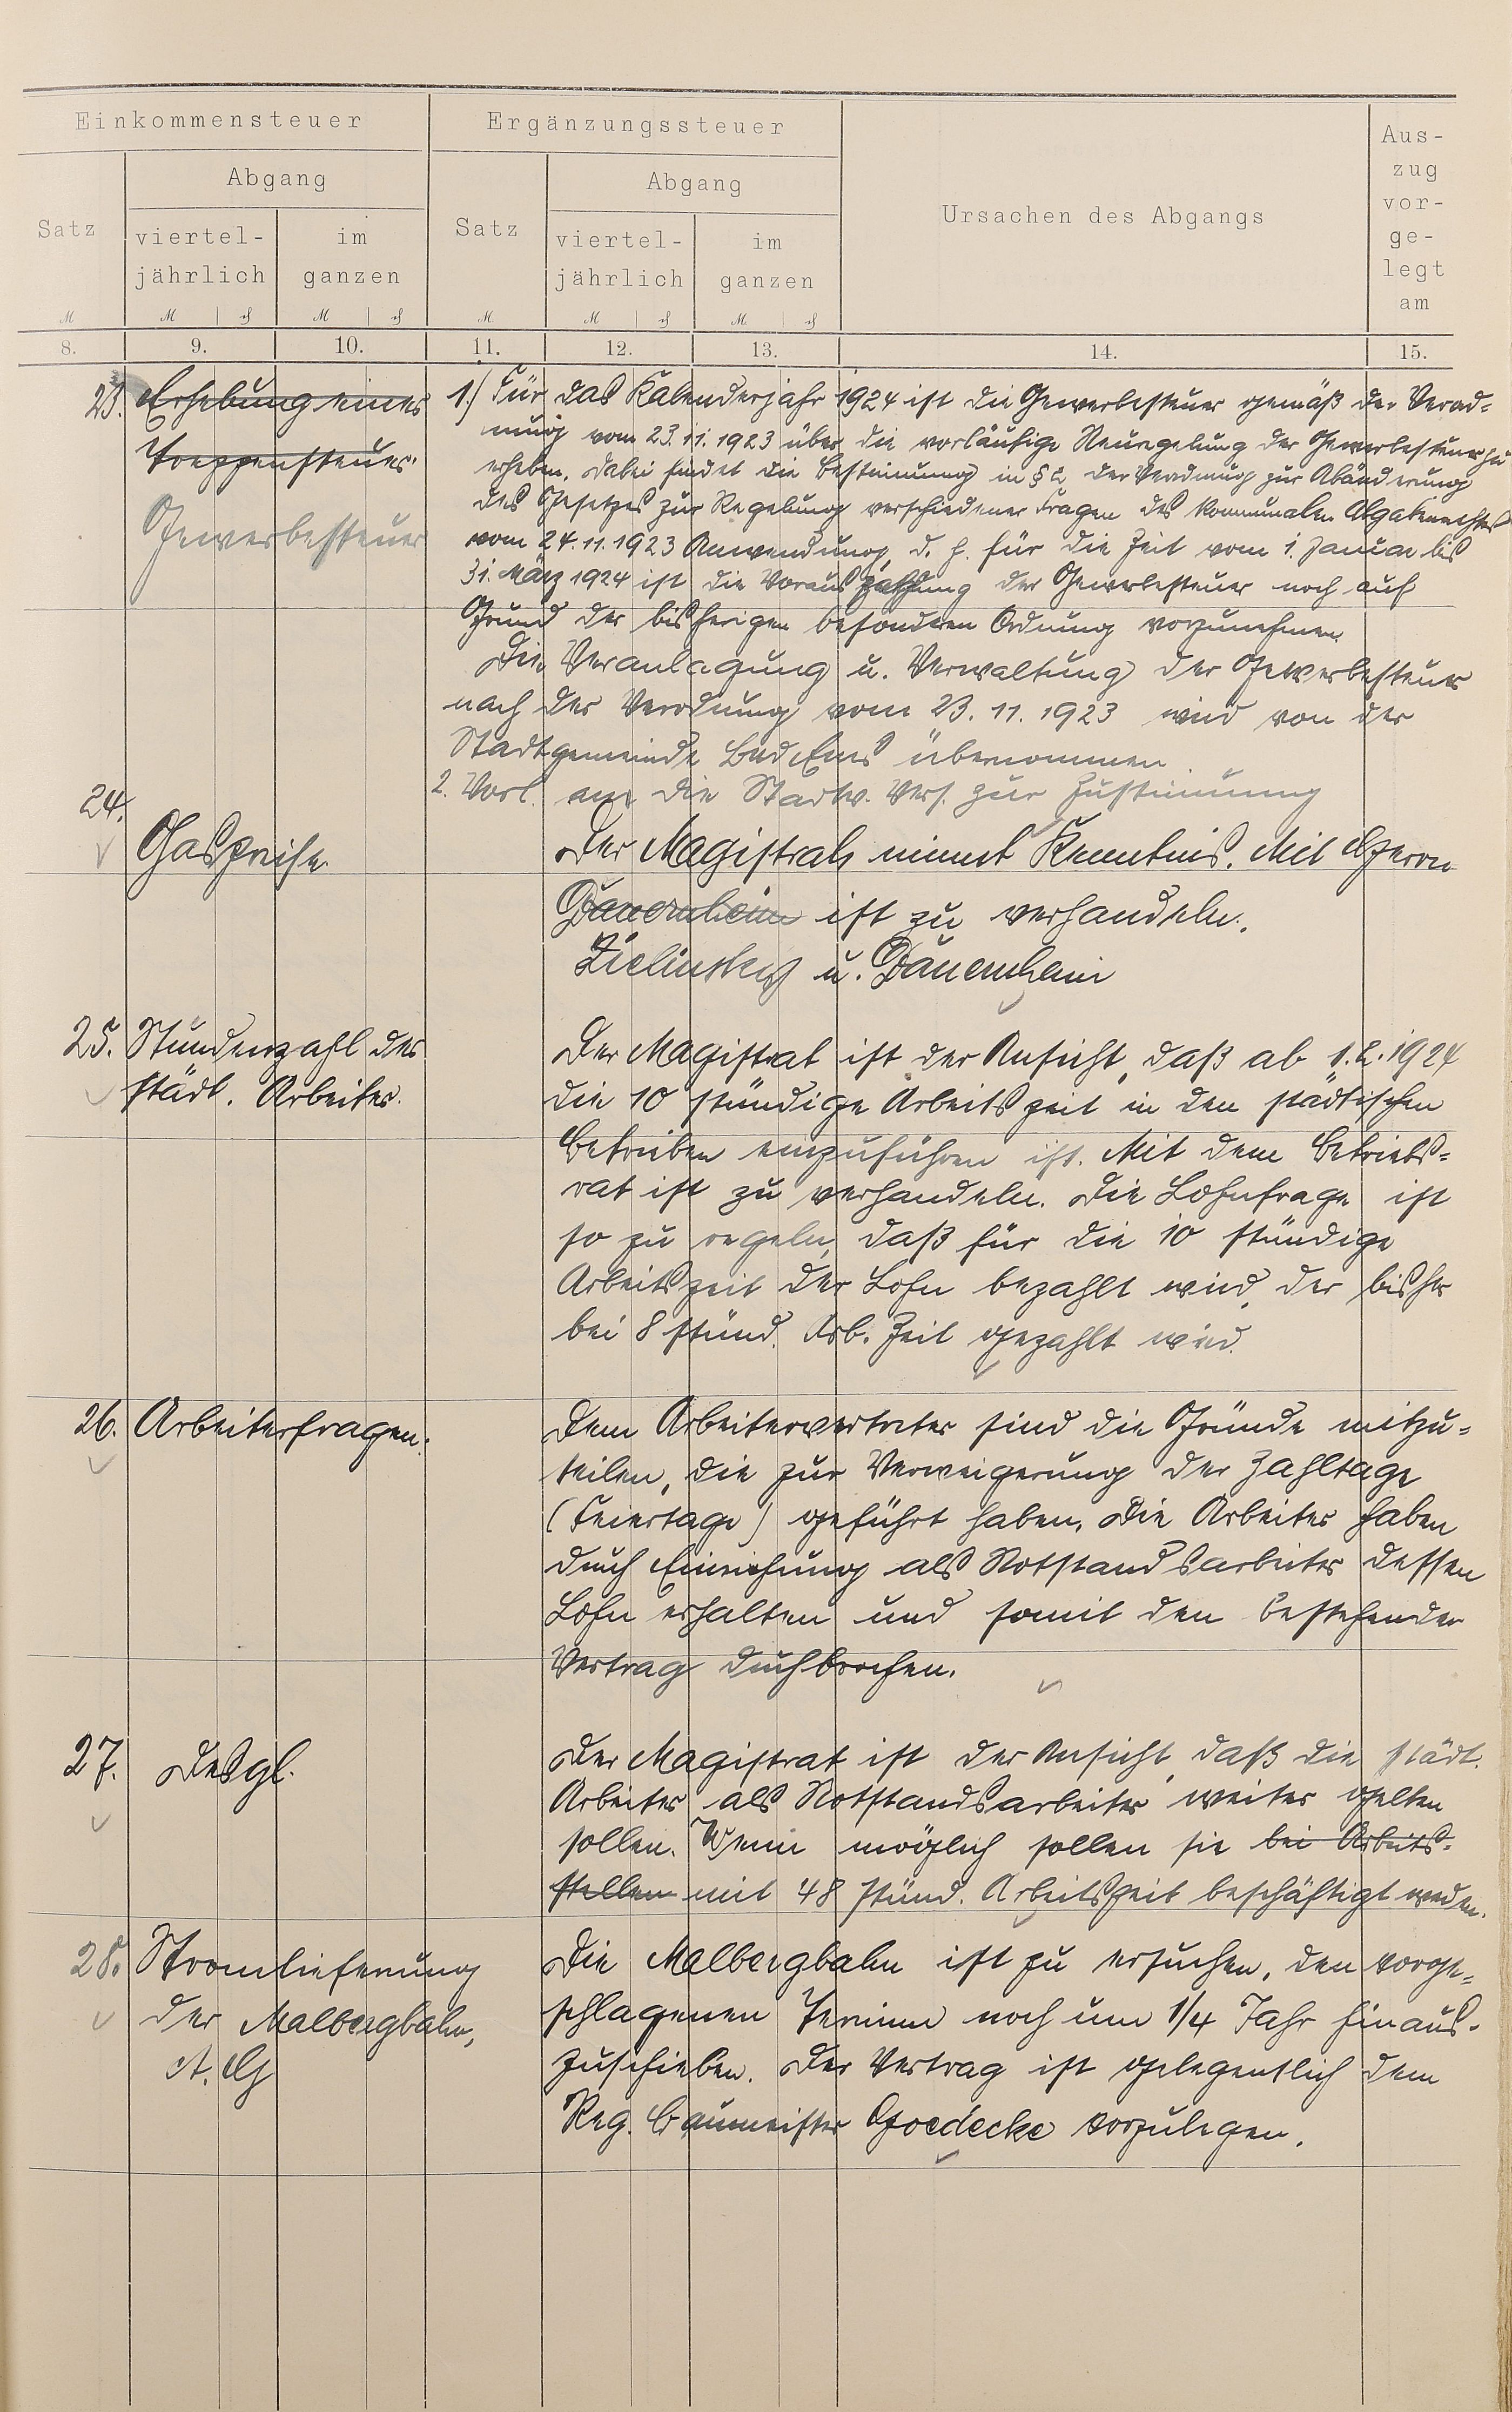 Einkommensteuer
Ergänzungssteuer
Ursachen des Abgangs
Aus-
zug
vor-
ge-
legt
am
Satz
Abgang
viertel-
jährlich
im
ganzen
Satz
Abgang
viertel-
jährlich
im
ganzen
M
M
₰
M
₰
M
M
₰
M
₰
8.
9.
10.
11.
12.
13.
14.
15.
23. Erhebung einer
Treppensteuer.
Gewerbesteuer
1.) Für das Kalenderjahr 1924 ist die Gewerbesteuer gemäß der Verord=
nung vom 23.11.1923 über die vorläufige Neuregelung der Gewerbesteuer zu
erheben. Dabei findet die Bestimmung in § 2 der Verordnung zur Abänderung
des Gesetzes zur Regelung verschiedener Fragen des kommunalen Abgabenrechtes
vom 24.11.1923 Anwendung, d. h. für die Zeit vom 1. Januar bis
31. März 1924 ist die Vorauszahlung der Gewerbesteuer noch auf
Grund der bisherigen besonderen Ordnung vorzunehmen.
Die Veranlagung u. Verwaltung der Gewerbesteuer
nach der Verordnung vom 23.11.1923 wird von der
Stadtgemeinde Bad Ems übernommen.
2. Vorl. an die Stadtv. Vers. zur Zustimmung
24.
Gaspreise
Der Magistrat nimmt Kenntnis. Mit Herrn
Dauernheim ist zu verhandeln.
Zielinsky u. Dauernheim
25. Stundenzahl der
städt. Arbeiter.
Der Magistrat ist der Ansicht, daß ab 1.2.1924
die 10 stündige Arbeitszeit in den städtischen
Betrieben einzuführen ist. Mit dem Betriebs=
rat ist zu verhandeln. Die Lohnfrage ist
so zu regeln, daß für die 10 stündige
Arbeitszeit der Lohn bezahlt wird, der bisher
bei 8 stünd. Arb. Zeit gezahlt wird.
26. Arbeiterfragen.
Dem Arbeitervertreter sind die Gründe mitzu=
teilen, die zur Verweigerung der Zahltage
(Feiertage) geführt haben. Die Arbeiter haben
durch Einreihung als Notstandsarbeiter dessen
Lohn erhalten und somit den bestehenden
Vertrag durchbrochen.
27. Desgl.
Der Magistrat ist der Ansicht, daß die städt.
Arbeiter als Notstandsarbeiter weiter gelten
sollen. Wenn möglich sollen sie bei Arbeits=
stellen mit 48 stünd. Arbeitszeit beschäftigt werden.
28. Stromlieferung
der Malbergbahn,
A. G
Die Malbergbahn ist zu ersuchen, den vorge=
schlagenen Termin noch um 1/4 Jahr hinaus=
zuschieben. Der Vertrag ist gelegentlich dem
Reg. Baumeister Goedecke vorzulegen.